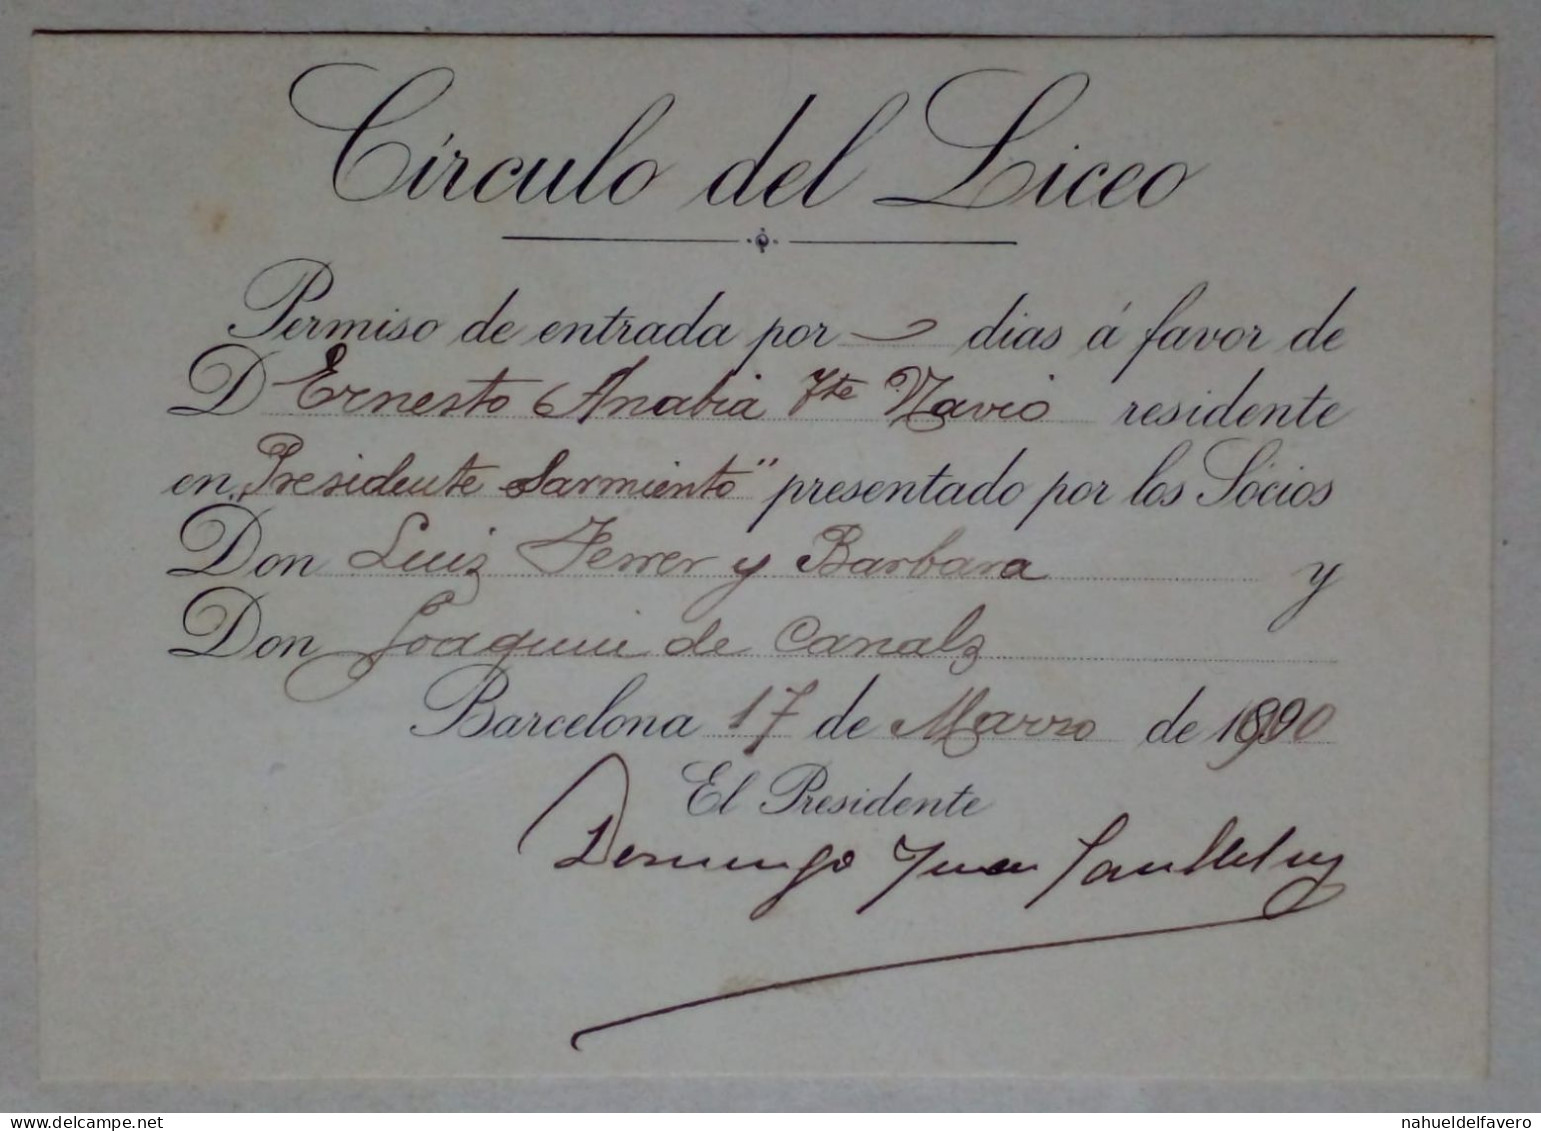 Círculo del Liceo
Permiso de entrada por dias á favor de
D Ernesto Anabia Tte Navio residente
en "Presidente Sarmiento" presentado por los Sócios
Don Luiz Ferrer y Barbara y
Don Joaquin de Canals
Barcelona 17 de Marzo de 1900
El Presidente
Domingo Juan
delcampe.net
nahueldelfavero